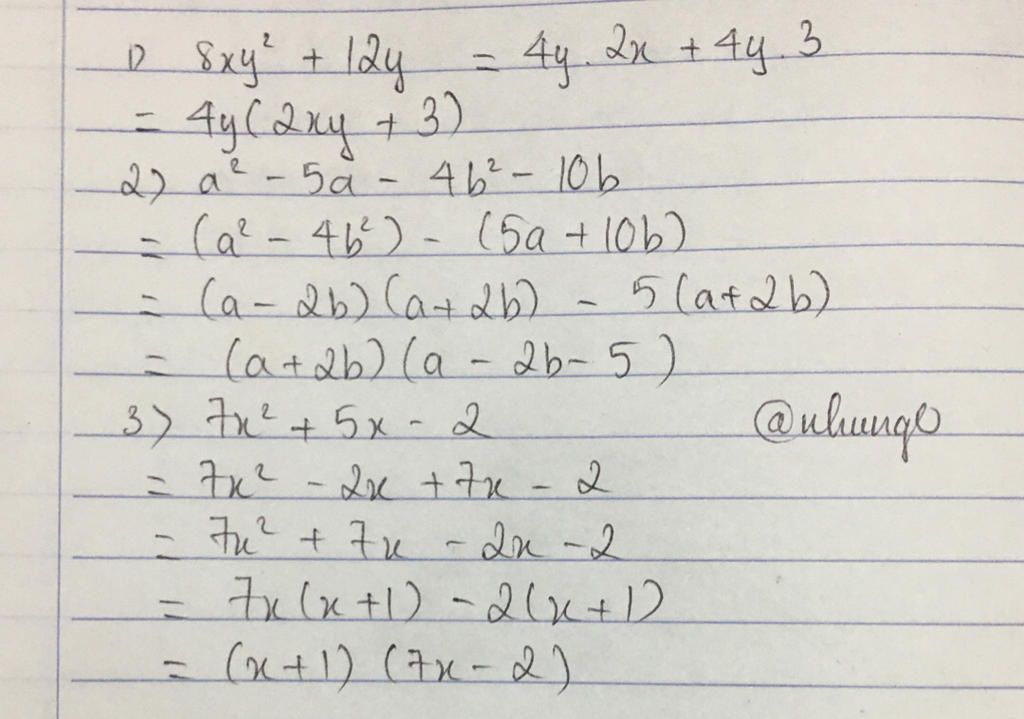 1) 8xy² + 12y = 4y . 2x + 4y . 3
= 4y(2xy + 3)
2) a² - 5a - 4b² - 10b
= (a² - 4b²) - (5a + 10b)
= (a - 2b)(a + 2b) - 5(a + 2b)
= (a + 2b)(a - 2b - 5)
3) 7x² + 5x - 2 @nhungl
= 7x² - 2x + 7x - 2
= 7x² + 7x - 2x - 2
= 7x(x + 1) - 2(x + 1)
= (x + 1)(7x - 2)